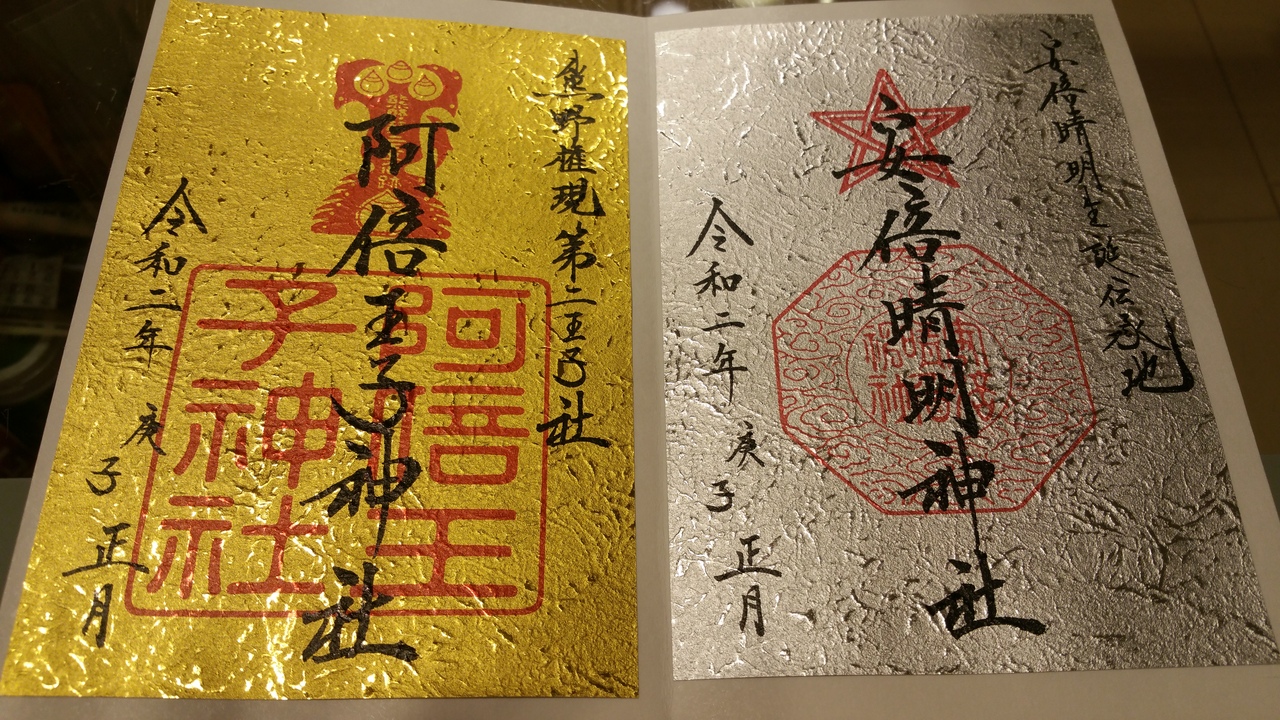 熊野権現第二王子社
阿倍王子神社
阿倍王
子神社
令和二年
庚子
正月
安倍晴明生誕伝承地
安倍晴明神社
令和二年
庚子
正月